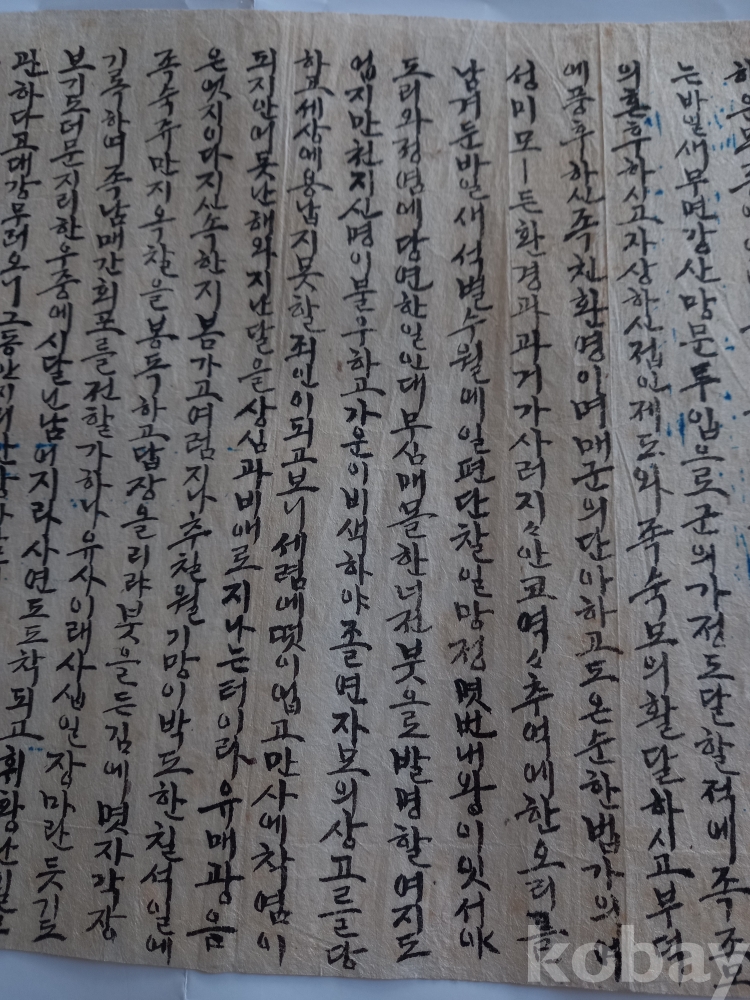 는바일새무면강산망문투입으로군의가정도달할적에족조
의혼후하시고자상하신접인제도와족숙모의활달하시고부덕
에풍후하신족친환영이며매군의단아하고도온순한범가의여
성미모ㅡ든환경과과거가사러지々안코역々추억에한오리를
남겨둔바일새석별수월에일편단찰일망정몃번내왕이잇서야
도리와정영에당연한일인대무심매몰한너전붓으로발명할여지도
업지만천지신명이불우하고가운이비색하야졸연자모의상고를당
하고세상에용납지못할죄인이되고보니세렴에떳이업고만사에착염이
되지안어못난해와지난달을상심과비애로지나는터이라유매광음
은멋지이다지신속한지봄가고여럼지나추칠월기망이박도한칠석일에
족숙쥬만지우찰을봉독하고답장올리랴붓을든김에몃자각장
길주하여족남매간회포를전할가하나유사이래사색일장마란듯기도
보기도더문지리한우중에시달닌남어지라사연도도착되고
관하다고대강무러오니그동안
kobay